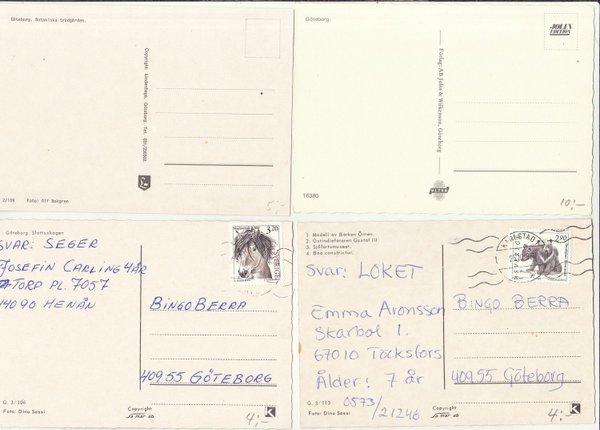 Göteborg. Botaniska trädgården.
Copyright: Lindenhags, Göteborg. Tel.
2/109 Foto: Alf Bokgren
5:-
Göteborg.
JOLIN
EDITION
Förlag: AB Jolin & Wilkenson, Göteborg
ULTRA
16380
10:-
Göteborg. Slottsskogen
SVAR: SEGER
JOSEFIN CARLING 4 ÅR
TORP PL. 7057
44090 HENÅN
3.20
SVERIGE
BINGO BERRA
40955 GÖTEBORG
G. 3/106
Foto: Dino Sassi
Copyright
4:-
K
1. Modell av Barken Örnen.
2. Ostindiefararen Gustaf III
3. Sjöfartsmuseet.
4. Boa constrictor.
2.90
Svar: LOKET
Emma Aronsson
Skarbol 1.
67010 Töcksfors
Ålder: 7 år
0573/21246
BINGO BERRA
40955 Göteborg
G. 3/113
Foto: Dino Sassi
Copyright
4:-
K